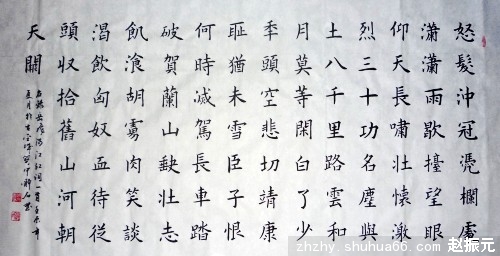 怒髮沖冠凴欄處
瀟瀟雨歇擡望眼
仰天長嘯壯懷激
烈三十功名塵與
土八千里路雲和
月莫等閒白了少
秊頭空悲切靖康
恥猶未雪臣子恨
何時滅駕長車踏
破賀蘭山缺壯志
飢湌胡虜肉笑談
渴飲匈奴血待從
頭收拾舊山河朝
天闕
岳飛滿江紅詞一首
zhzhy.shuhua66.com 赵振元